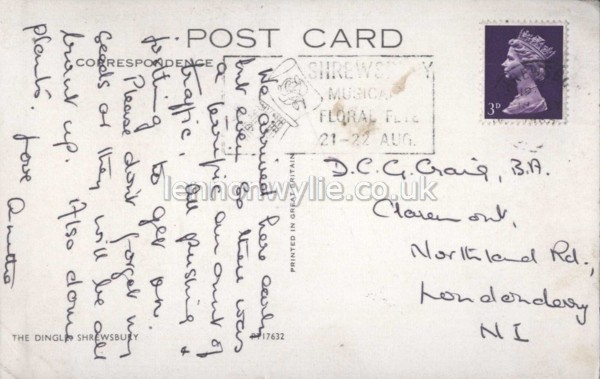 POST CARD
CORRESPONDENCE
SHREWSBURY
MUSICAL
FLORAL FETE
21-22 AUG.
3D
We arrived here early
but even so there was
a terrific amount of
traffic, all pushing &
jostling to get on.
Please don't forget my
seeds or they will be all
burnt up. Also dome
plants. Love
PRINTED IN GREAT BRITAIN
D.C.G. Craig, B.A.
Claremont,
Northland Rd.,
Londonderry
N I
lennonwylie.co.uk
THE DINGLE, SHREWSBURY
PT17632